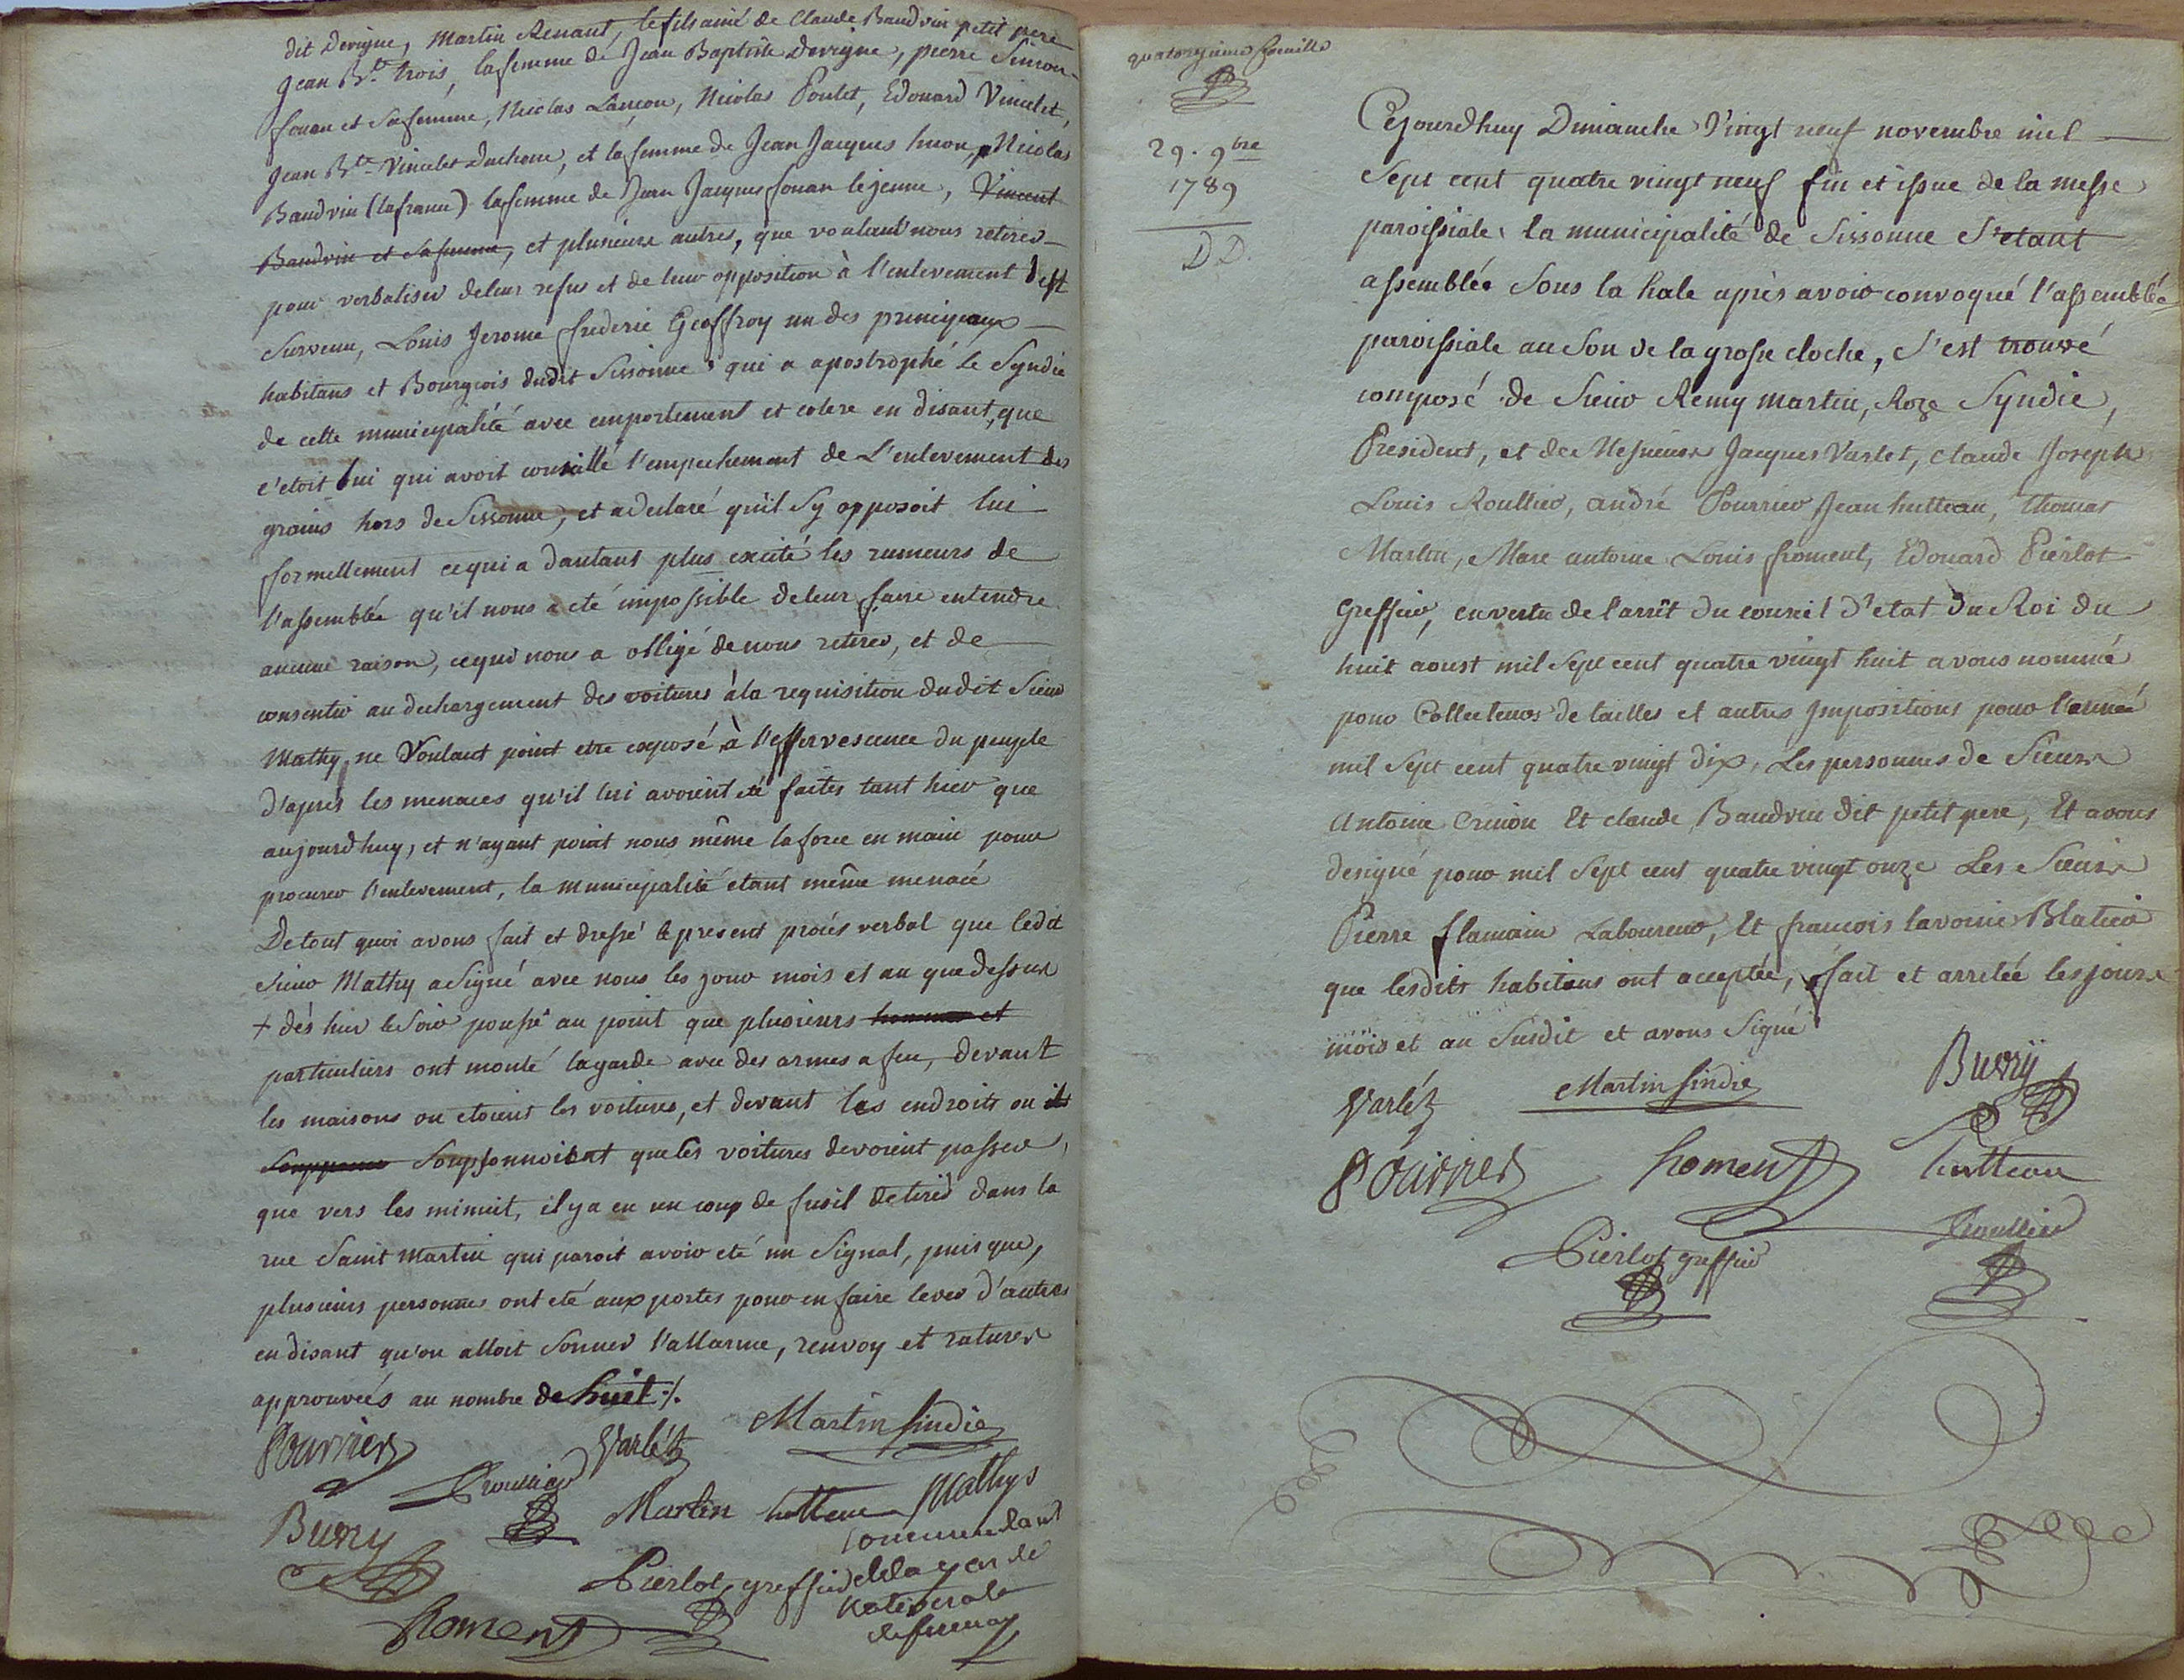 dit Devigne, Martin Renaut, le fils ainé de Claude Baudvin petit pere
Jean Bte. trois, la femme de Jean Baptiste Devigne, pierre Simon
fouan et Sa femme, Nicolas Lançon, Nicolas Poulet, Edouard Vincelet,
Jean Bte. Vincelet Duchene, et la femme de Jean Jacques huon, Nicolas
Baudvin (lafranc) la femme de Jean Jacques fouan le jeune, Vincent
Baudvin et Sa femme, et plusieurs autres, que voulant nous retirer
pour verbaliser de leur refus et de leur opposition à l'enlevement Est
Survenu, Louis Jerome frederic Geoffroy un des principaux
habitans et Bourgeois dudit Sissonne qui a apostrophé le Syndic
de cette municipalité avec emportement et colere en disant, que
c'etoit lui qui avoit conseillé l'empechement de L'enlevement des
grains hors de Sissonne, et a declaré qu'il Sy opposoit lui
formellement ce qui a dautant plus excité les rumeurs de
l'assemblée qu'il nous a eté impossible de leur faire entendre
aucune raison, ce qui nous a obligé de nous retirer, et de
consentir au dechargement des voitures à la requisition dudit Sieur
Mathy ne Voulant point etre exposé à l'effervescence du peuple
d'après les menaces qu'il lui avoient eté faites tant hier que
aujourdhuy, et n'ayant point nous même la force en main pour
procurer l'enlevement, la municipalité etant même menacé
De tout quoi avons fait et dressé le present procés verbal que ledit
Sieur Mathy a Signé avec nous les jour mois et an que dessus
+ dés hier le Soir poussé au point que plusieurs hommes et
particuliers ont monté la garde avec des armes a feu, devant
les maisons ou etoient les voitures, et devant les endroits ou ils
Souppeconnoient que les voitures devoient passer,
que vers les minuit, il y a eu un coup de fusil de tiré dans la
rue Saint Martin qui paroit avoir eté un Signal, puis que,
plusieurs personnes ont eté aux portes pour en faire lever d'autres
en disant qu'on alloit Sonner l'allarme, renvoy et ratures
approuvées au nombre de huit ./.
Pourrier
Varlét
Martin sindic
Roullier
Buvry
Martin
hutteau
Mathys
commandant
Pierlot greffier
de la garde
nationale
froment
quatorzieme feuille
29. 9bre
1789
D D.
Cejourdhuy Dimanche Vingt neuf novembre mil
Sept cent quatre vingt neuf fin et issue de la messe
paroissiale la municipalité de Sissonne S'etant
assemblée Sous la hale après avoir convoqué l'assemblée
paroissiale au Son de la grosse cloche, S'est trouvé
composé de Sieur Remy Martin, Roze Syndic,
President, et de Messieurs Jacques Varlet, Claude Joseph
Louis Roullier, andré Pourrier, Jean hutteau, Thomas
Martin, Marc antoine Louis froment, Edouard Pierlot
Greffier, en vertu de l'arrêt du conseil d'etat du Roi du
huit aoust mil Sept cent quatre vingt huit avons nommé
pour Collecteurs de tailles et autres Impositions pour l'anneé
mil Sept cent quatre vingt dix, Les personnes de Sieurs
Antoine Crinon Et claude Baudvin dit petit pere, Et avons
designé pour mil Sept cent quatre vingt onze Les Sieurs
Pierre flamain Laboureur, Et françois lavoine Blatier
que lesdits habitans ont acceptée, fait et arretée les jours
mois et an Susdit et avons Signé
Varlét
Martin sindic
Buvry
Pourrier
froment
hutteau
Pierlot greffier
Roullier